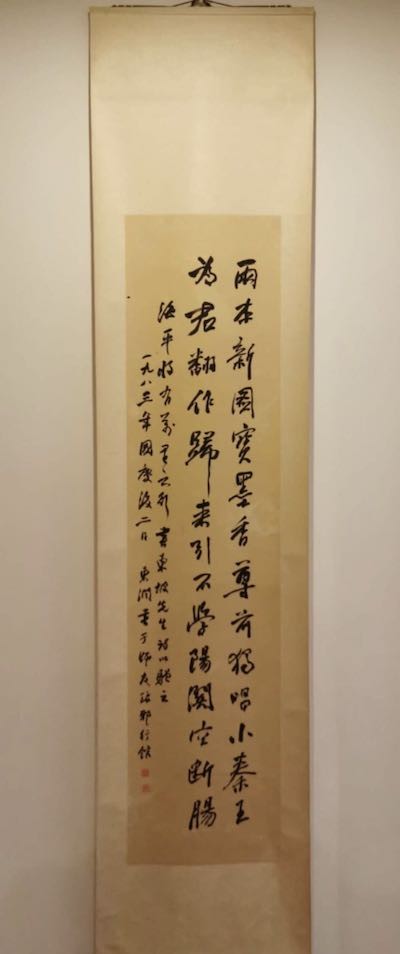 兩本新圖寶墨香尊前獨唱小秦王
為君翻作歸來引不學陽關空斷腸
海平將有萬里之行書東坡先生詩以贈之
一九八三年國慶後二日 東潤書于師友瑯邪行館